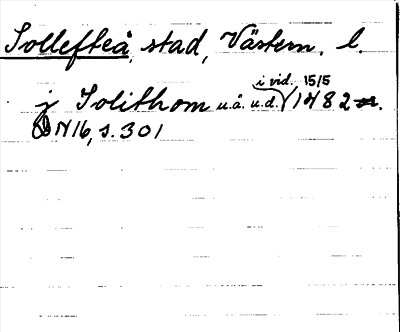 Sollefteå, stad, Västern. l.
i vid. 15/5
j Solithom u.å. u.d. 1482
N16, s. 301